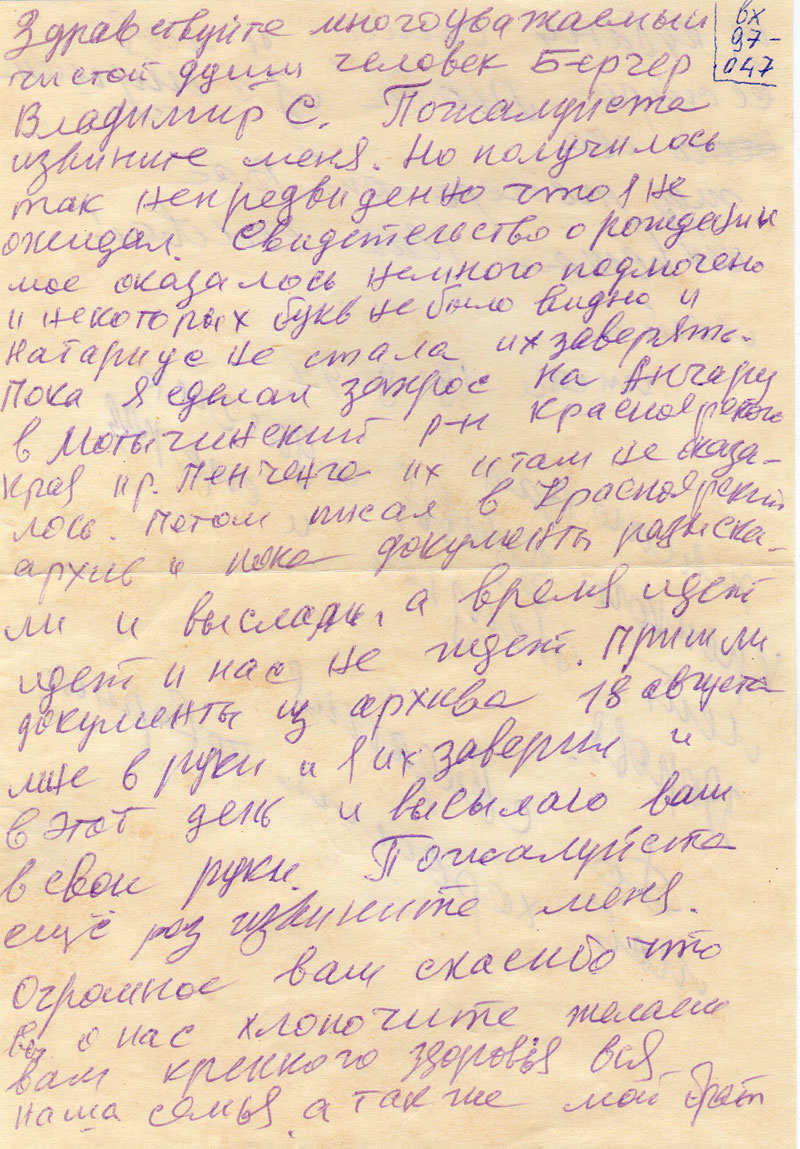 Здравствуйте многоуважаемый
вх
97-
047
чистой души человек Бергер
Владимир С. Пожалуйста
извините меня. Но получилось
так непредвиденно что я не
ожидал. Свидетельство о рождении
мое оказалось немного подмочено
и некоторых букв не было видно и
натариус не стала их заверять.
Пока я сделал запрос на Ангару
в Мотыгинский р-н Красноярского
края пр. Пенченга их и там не оказа-
лось. Потом писал в Красноярский
архив и пока документы разыска-
ли и выслали, а время идет
идет и нас не ждет. Пришли
документы из архива 18 августа
мне в руки и я их заверил и
в этот день и высылаю вам
в свои руки. Пожалуйста
ещё раз извините меня.
Огромное вам спасибо что
Вы о нас хлопочите желаем
вам крепкого здоровья вся
наша семья, а так же мой брат